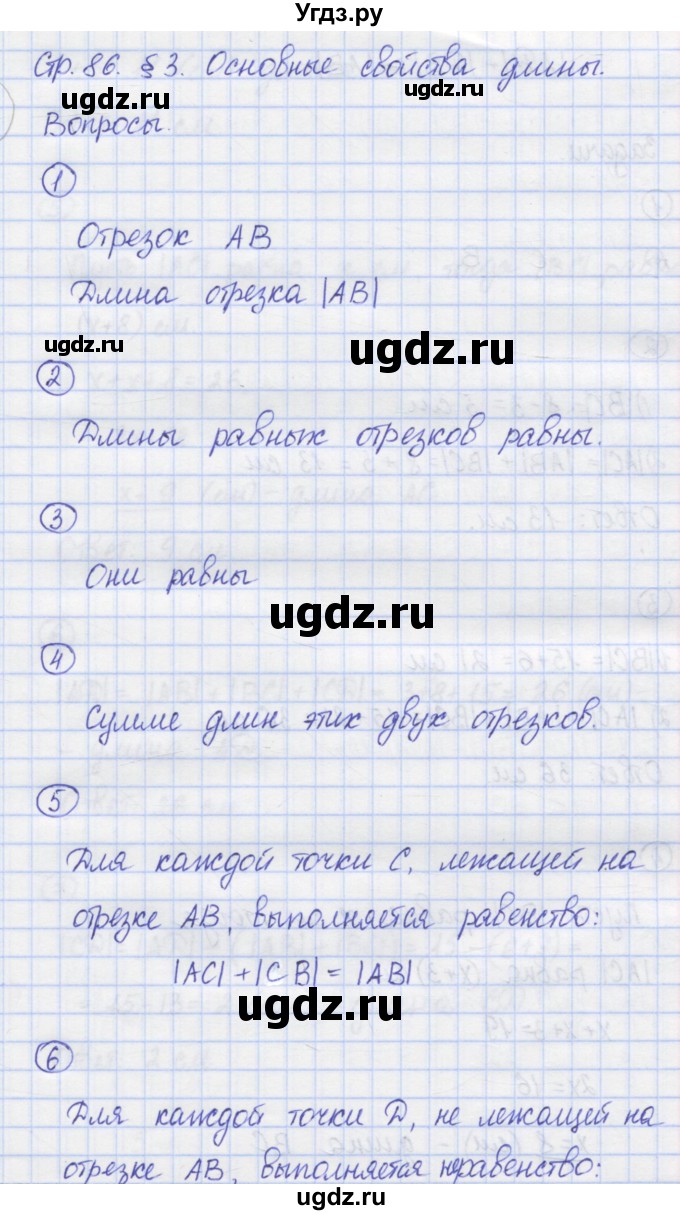 Угдз.ру
Стр. 86. § 3. Основные свойства длины.
ugdz.ru ugdz.ru
Вопросы.
1
Отрезок AB
Длина отрезка |AB|
ugdz.ru ugdz.ru
2
Длины равных отрезков равны.
ugdz.ru
3
Они равны
ugdz.ru
4
Сумме длин этих двух отрезков.
ugdz.ru
5
Для каждой точки C, лежащей на
отрезке AB, выполняется равенство:
ugdz.ru
|AC| + |CB| = |AB|
ugdz.ru
6
Для каждой точки D, не лежащей на
отрезке AB, выполняется неравенство:
ugdz.ru